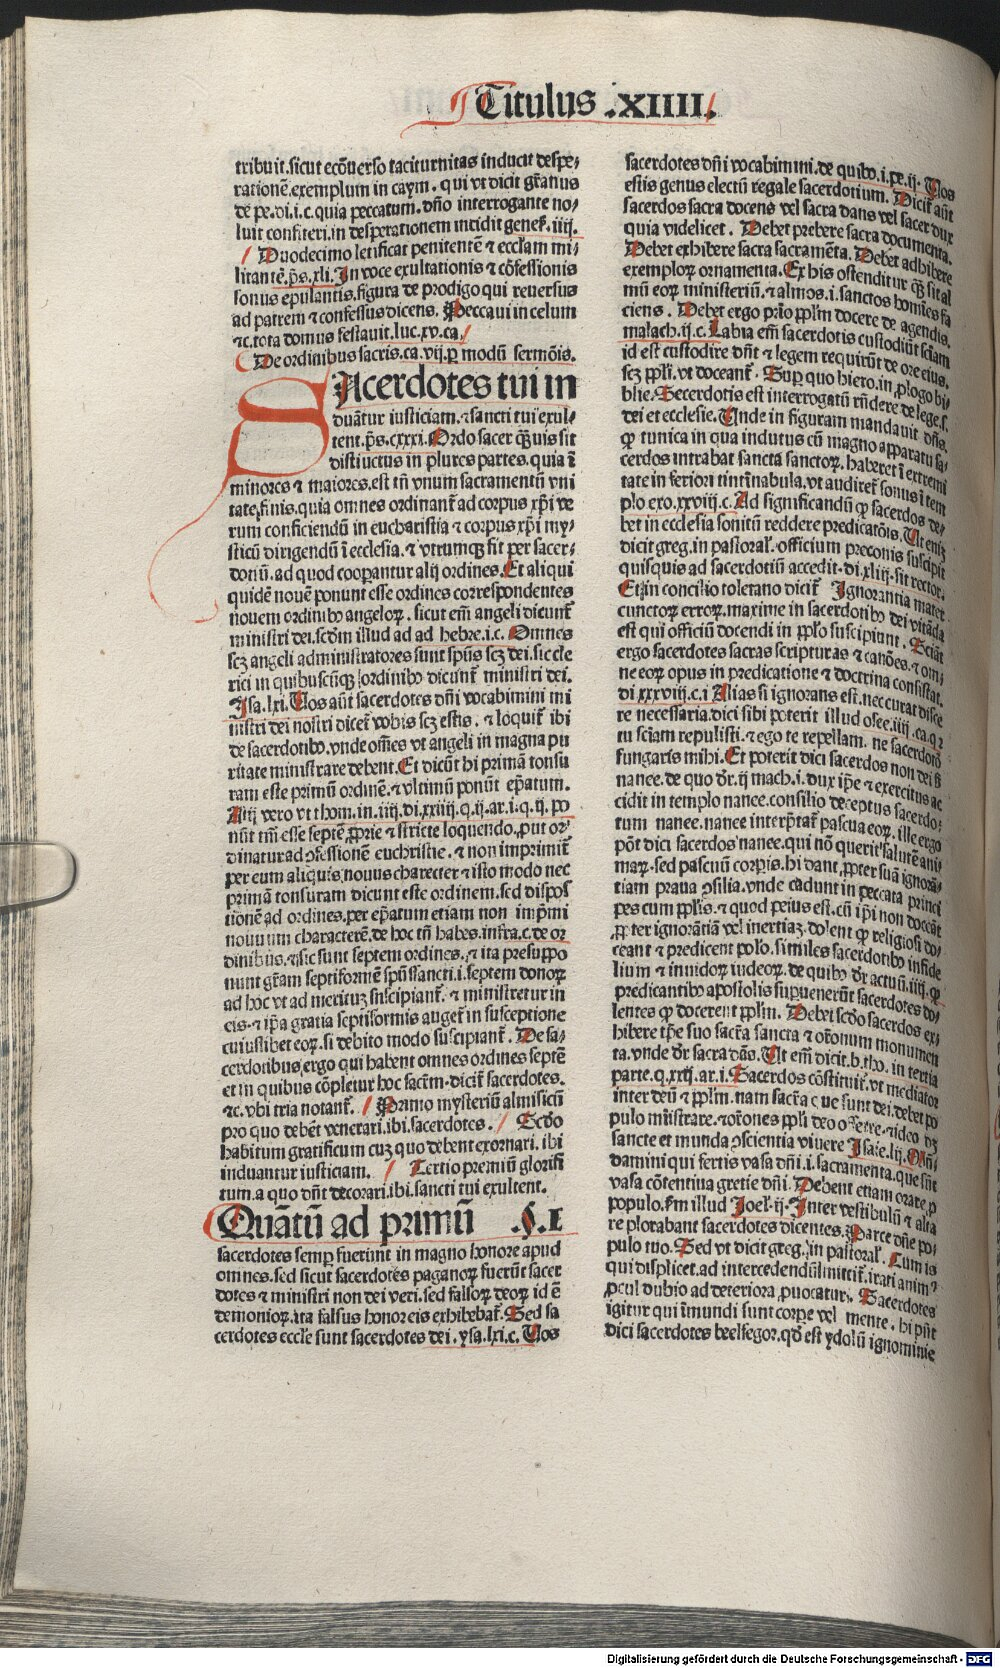 Titulus .XIIII.
tribuit.sicut ecōuerso taciturnitas inducit despe-
rationē.exemplum in caym. qui vt dicit gr̄anus
de pe.di.i.c.quia peccatum. dn̄o interrogante no-
luit confiteri.in desperationem incidit geneẜ. iiij.
Duodecimo letificat penitentē ⁊ eccl̄am mi-
litantē.ps̄.xli. In voce exultationis ⁊ cōfessionis
sonus epulantis.figura de prodigo qui reuersus
ad patrem ⁊ confessus dicens. Peccaui in celum
⁊c.tota domus festauit.luc.xv.ca.
De ordinibus sacris.ca.vij.ꝑ modū sermōis.
SAcerdotes tui in
duātur iusticiam.⁊ sancti tui exul-
tent.ps̄.cxxxi. Ordo sacer qꝫuis sit
distinctus in plures partes.quia ī
minores ⁊ maiores.est tn̄ vnum sacramentū vni
tate finis.quia omnes ordinant̄ ad corpus xp̄i ve
rum conficiendū in eucharistia ⁊ corpus xp̄i my-
sticū dirigendū ī ecclesia.⁊ vtrumqꝫ fit per sacer-
dotiū.ad quod coopantur alij ordines. Et aliqui
quidē nouē ponunt esse ordines correspondentes
nouem ordinibꝰ angeloꝝ. sicut em̄ angeli dicunt̄
ministri dei.scd̄m illud ad ad hebre.i.c. Omnes
scꝫ angeli administratores sunt spūs scꝫ dei.sic cle
rici in quibuscūqꝫ ordinibꝰ dicunt̄ ministri dei.
Isa.lxi. Uos aūt sacerdotes dn̄i vocabimini mi
nistri dei nostri dicet̄ vobis scꝫ estis. ⁊ loquit̄ ibi
de sacerdotibꝰ.vnde om̄es vt angeli in magna pu
ritate ministrare debent. Et dicūt hi primā tonsu
ram esse primū ordinē.⁊ vltimū ponūt ep̄atum.
Alij vero vt thom.in.iiij.di.xxiiij.q.ij.ar.i.q.ij. po
nūt tm̄ esse septē ꝓprie ⁊ stricte loquendo.ꝓut or-
dinatur ad ↄfessionē euchristie.⁊ non imprimit̄
per eum aliquis nouus charecter ⁊ isto modo nec
primā tonsuram dicunt esse ordinem.sed dispos
itionē ad ordines.per ep̄atum etiam non imp̄mi
nouum characterē.de hoc tn̄ habes.infra.c.de or
dinibus.⁊ sic sunt septem ordines.⁊ ita presuppo
nunt gr̄am septiformē spūssancti.i.septem donoꝝ
ad hoc vt ad meritꝫ suscipiant̄. ⁊ ministretur in
eis.⁊ ip̄a gratia septiformis auget̄ in susceptione
cuiuslibet eoꝝ.si debito modo suscipiant̄. De sa-
cerdotibus ergo qui habent omnes ordines septē
et in quibus cōpletur hoc sacr̄m.dicit̄ sacerdotes.
⁊c.vbi tria notant̄. Primo mysteriū almisicū
pro quo debēt venerari.ibi.sacerdotes. Secd̄o
habitum gratificum cuꝫ quo debent exornari. ibi
induantur iusticiam. Tertio premiū glorifi
tum.a quo dn̄t decorari.ibi.sancti tui exultent.
Quātū ad primū .§.I
sacerdotes semꝑ fuerunt in magno honore apud
omnes.sed sicut sacerdotes paganoꝝ fuerūt sacer
dotes ⁊ ministri non dei veri.sed falsoꝝ deoꝝ id ē
demonioꝝ.ita falsus honor eis exhibebat̄. Sed sa
cerdotes eccl̄e sunt sacerdotes dei.ysa.lxi.c. Uos
sacerdotes dn̄i vocabimini.de quibꝰ.i.pe.ij. Uos
estis genus electū regale sacerdotium. Dicit̄ aūt
sacerdos sacra docens vel sacra dans vel sacer dux
quia videlicet. Debet prebere sacra documenta.
Debet exhibere sacra sacramēta. Debet adhibere
exemploꝝ ornamenta. Ex his ostenditur qꝫ sit al
mū eoꝝ ministeriū.⁊ almos.i.sanctos hom̄ies fa
ciens. Debet ergo p̄rio ppl̄im docere de agendis.
malach.ij.c. Labia em̄ sacerdotis custodiūt sciam
id est custodire dn̄t ⁊ legem requirūt de ore eius,
scꝫ ppl̄i.vt doceant̄. Suꝑ quo hiero.in.ꝓlogo bi-
blie. Secerdotis est interrogatū rn̄dere de lege.s.
dei et ecclesie. Unde in figuram mandauit dn̄s.
ꝙ tunica in qua indutus cū magno apparatu sa-
cerdos intrabat sancta sanctoꝝ. haberet ī extremi
tate in feriori tintīnabula.vt audiret̄ sonus ī tem
plo exo.xxviij.c. Ad significandū ꝙ sacerdos de-
bet in ecclesia sonitū reddere predicatōis. Ut eniꝫ
dicit greg.in pastoral̄. officium preconis suscipit
quisquis ad sacerdotiū accedit.di.xliij.sit rector.
Et in concilio toletano dicit̄ Ignorantia mater
cunctoꝝ erroꝝ.maxime in sacerdotibꝰ dei vitāda
est qui officiū docendi in pp̄lo suscipiunt. Sciāt
ergo sacerdotes sacras scripturas ⁊ canōes.⁊ om-
ne eoꝝ opus in predicatione ⁊ doctrina consistat.
di xxxviij.c.i Alias si ignorans est.nec curat disce
re necessaria.dici sibi poterit illud osee.iiij.ca.qꝛ
tu sciam repulisti.⁊ ego te repellam. ne sacerdotō
fungaris mihi. Et poterit dici sacerdos non dei sꝫ
nanee.de quo dr̄.ij mach.i.dux ip̄e ⁊ exercitus ac
cidit in templo nance.consilio deceptus sacerdo-
tum nanee.nanee interp̄tat̄ pascua eoꝝ. ille ergo
pōt dici sacerdos nanee.qui nō querit salutē ani-
maꝝ.sed pascuū corꝑis.hi dant ꝓpter suā ignorā-
tiam praua ↄsilia.vnde cadunt in peccata princi
pes cum pplīs.⁊ quod peius est.cū ip̄i non doceāt
ꝓpter ignorātiā vel inertiaꝫ.dolent ꝙ religiosi do-
ceant ⁊ predicent pplo.similes sacerdotibꝰ infide
lium ⁊ inuidoꝝ iudeoꝝ. de quibꝰ dr̄ actuū.iiij.ꝙ
predicantibꝰ apostolis suꝑuenerūt sacerdotes do-
lentes ꝙ docerent ppl̄m. Debet scd̄o sacerdos ex-
hibere ip̄e suo sacr̄a sancta ⁊ or̄onum monumen
ta.vnde dr̄ sacra dās. Ut em̄ dicit.b.tho.in tertia
parte.q.xxij.ar.i. Sacerdos cōstituit̄.vt mediator
inter deū ⁊ ppl̄m.nam sacr̄a que sunt dei.debet po
pulo mīstrare.⁊ or̄ones ppl̄i deo offerre.⁊ ideo dꝫ
sancte et munda ↄscientia viuere Isaie.lij. Mūn-
damini qui fertis vasa dn̄i.i.sacramenta.que sn̄t
vasa cōtentiua gretie dn̄i. Debent etiam orare ꝓ
populo.ẜm illud Joel̄.ij. Inter vestibulū ⁊ alta
re plorabant sacerdotes dicentes. Parce dn̄e po-
pulo tuo. Sed vt dicit greg. in pastoral̄. Cum is
qui displicet.ad intercedendū mittit̄.irati animꝰ
ꝓcul dubio ad deteriora ꝓuocatur. Sacerdotes
igitur qui īmundi sunt corꝑe vel mente. hi pn̄t
dici sacerdotes beelfegor.qd̄ est ydolū ignominie
Digitalisierung gefördert durch die Deutsche Forschungsgemeinschaft - DFG